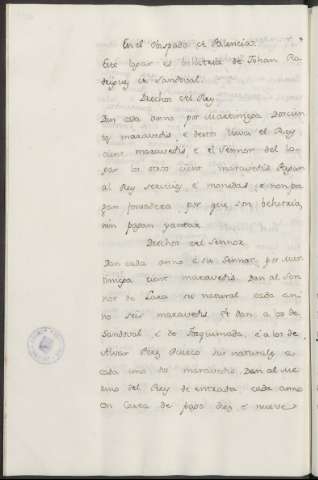 En el Obispado de Palencia.
Este logar es behetria de Johan Ro-
driguez de Sandoval.
Derechos del Rey.
Dan cada anno por Martiniega
maravedis, e desto lieva el Rey
cient maravedis e el Sennor del lo-
gar los otros cient maravedis Pagan
al Rey servicios, e monedas, e non pa-
gan fonsadera por que son behetria,
nin pagan yantar.
Derechos del Sennor
Dan cada anno e su Sennor, por mar-
tiniega cient maravedis. Dan al Sen-
nor de Lara su natural cada an-
no seis maravedis. E dan a los de
Sandoval, e de e a los de
Alvar su naturales a
cada uno maravedis. Dan al Me-
rino del Rey de entrada, cada anno
on Carga de diez e nueve